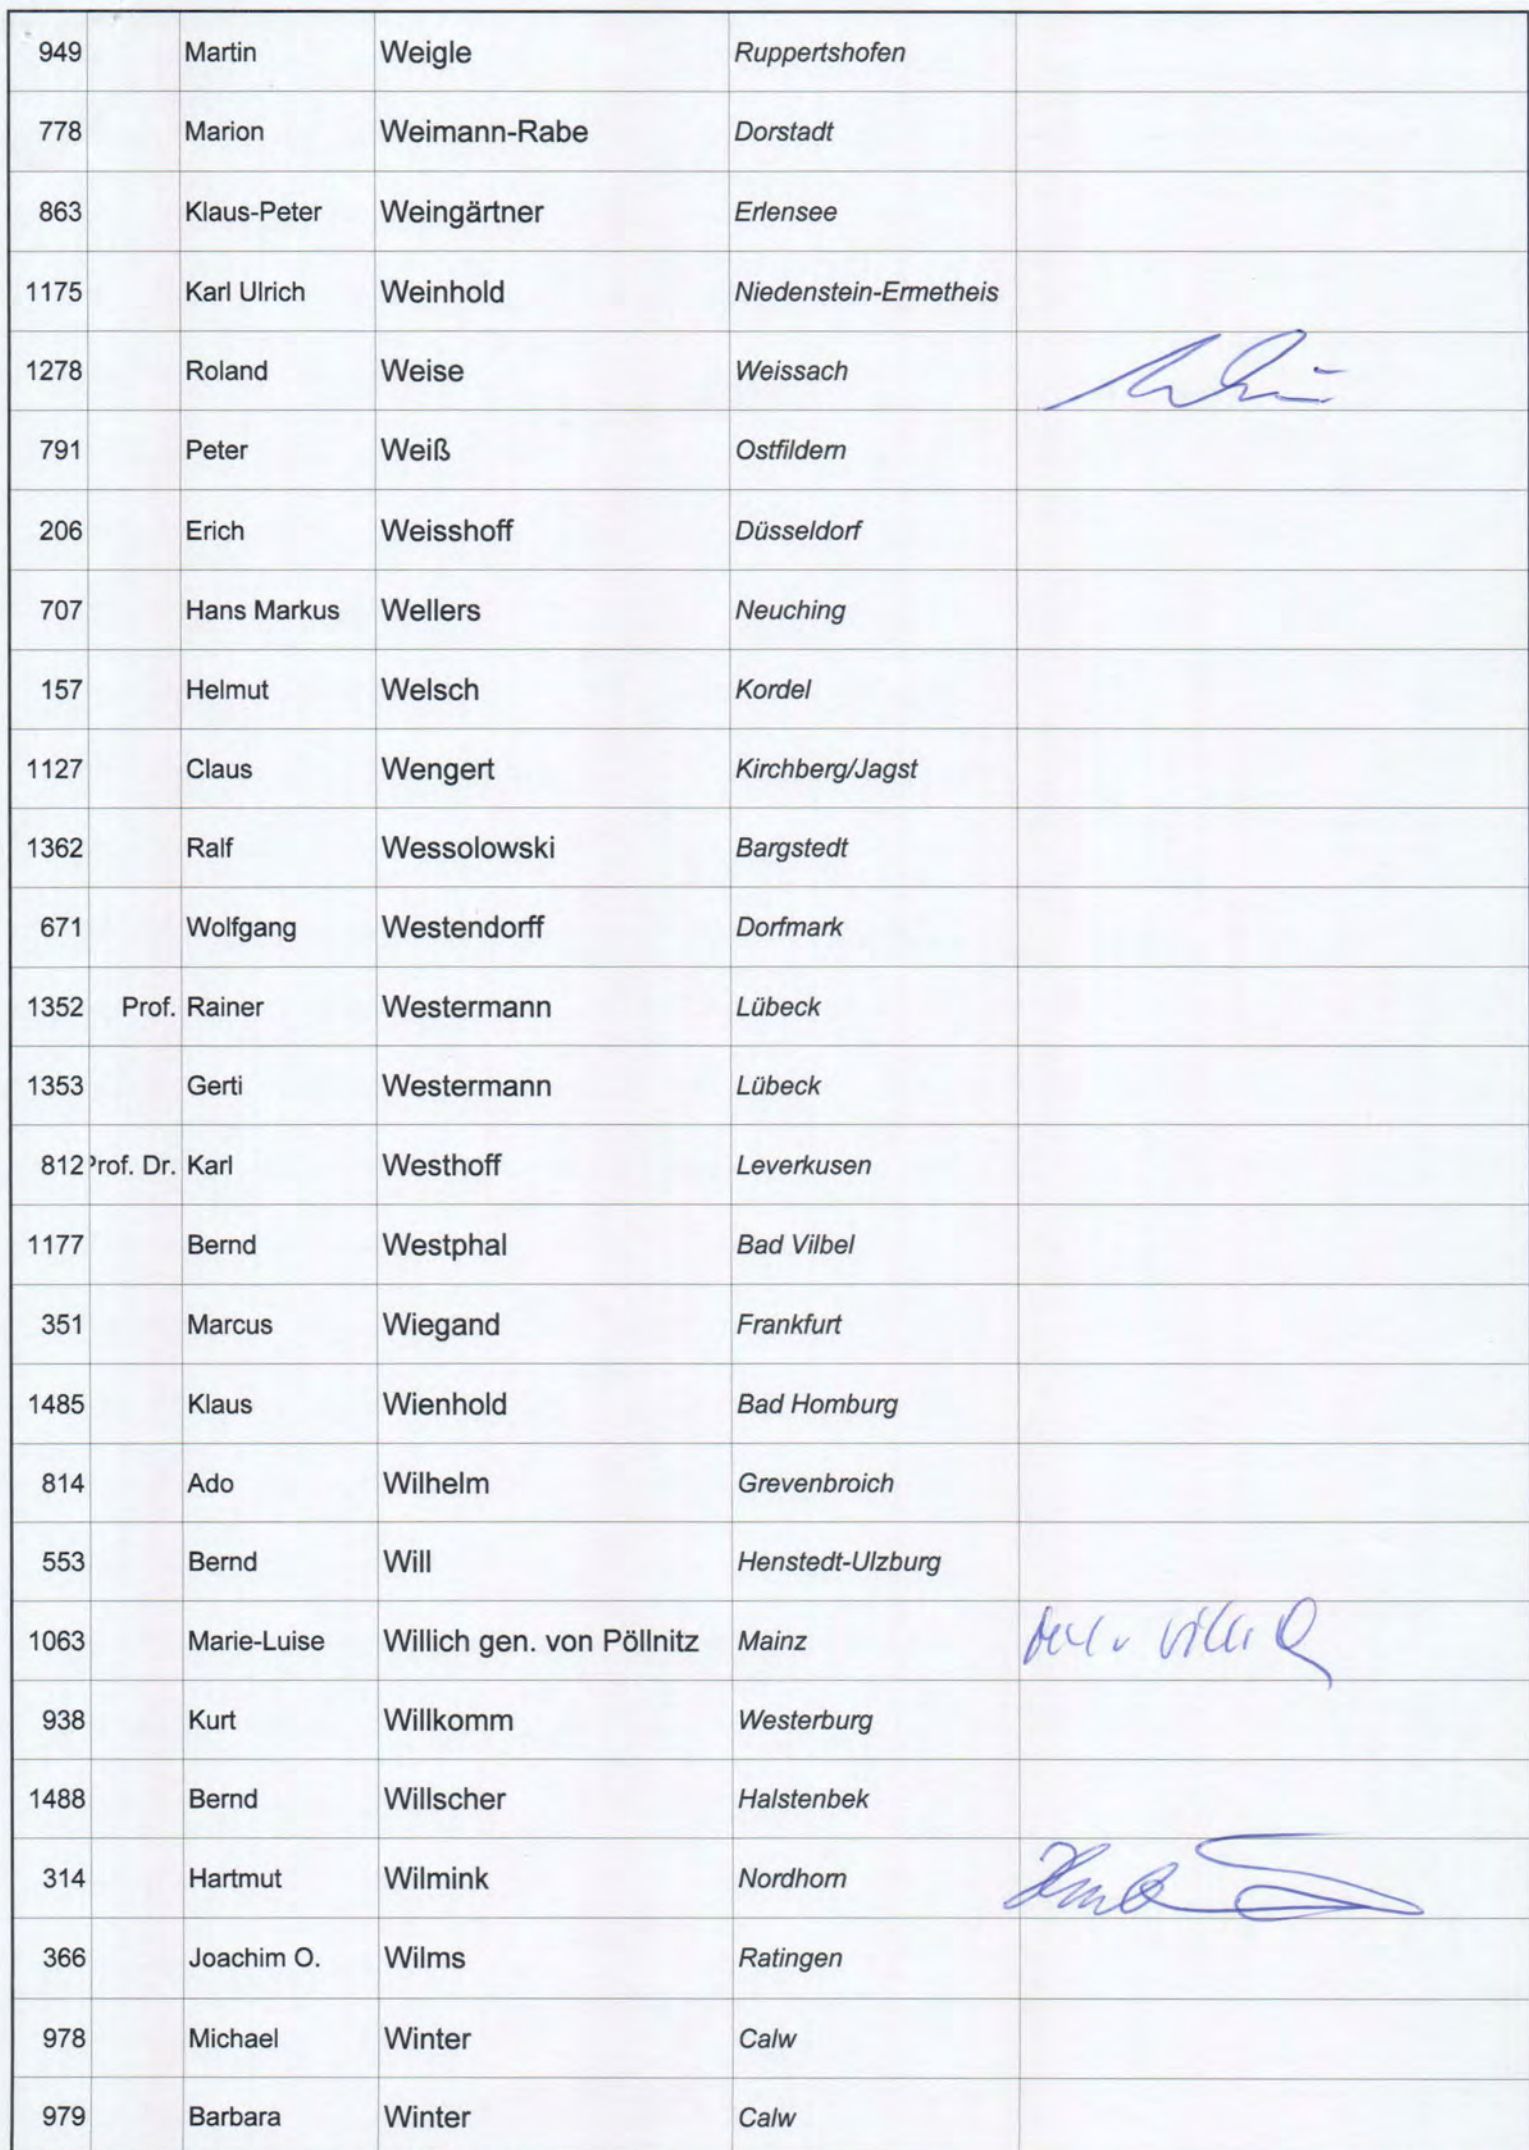 949 Martin Weigle Ruppertshofen
778 Marion Weimann-Rabe Dorstadt
863 Klaus-Peter Weingärtner Erlensee
1175 Karl Ulrich Weinhold Niedenstein-Ermetheis
1278 Roland Weise Weissach
791 Peter Weiß Ostfildern
206 Erich Weisshoff Düsseldorf
707 Hans Markus Wellers Neuching
157 Helmut Welsch Kordel
1127 Claus Wengert Kirchberg/Jagst
1362 Ralf Wessolowski Bargstedt
671 Wolfgang Westendorff Dorfmark
1352 Prof. Rainer Westermann Lübeck
1353 Gerti Westermann Lübeck
812 Prof. Dr. Karl Westhoff Leverkusen
1177 Bernd Westphal Bad Vilbel
351 Marcus Wiegand Frankfurt
1485 Klaus Wienhold Bad Homburg
814 Ado Wilhelm Grevenbroich
553 Bernd Will Henstedt-Ulzburg
1063 Marie-Luise Willich gen. von Pöllnitz Mainz
938 Kurt Willkomm Westerburg
1488 Bernd Willscher Halstenbek
314 Hartmut Wilmink Nordhorn
366 Joachim O. Wilms Ratingen
978 Michael Winter Calw
979 Barbara Winter Calw